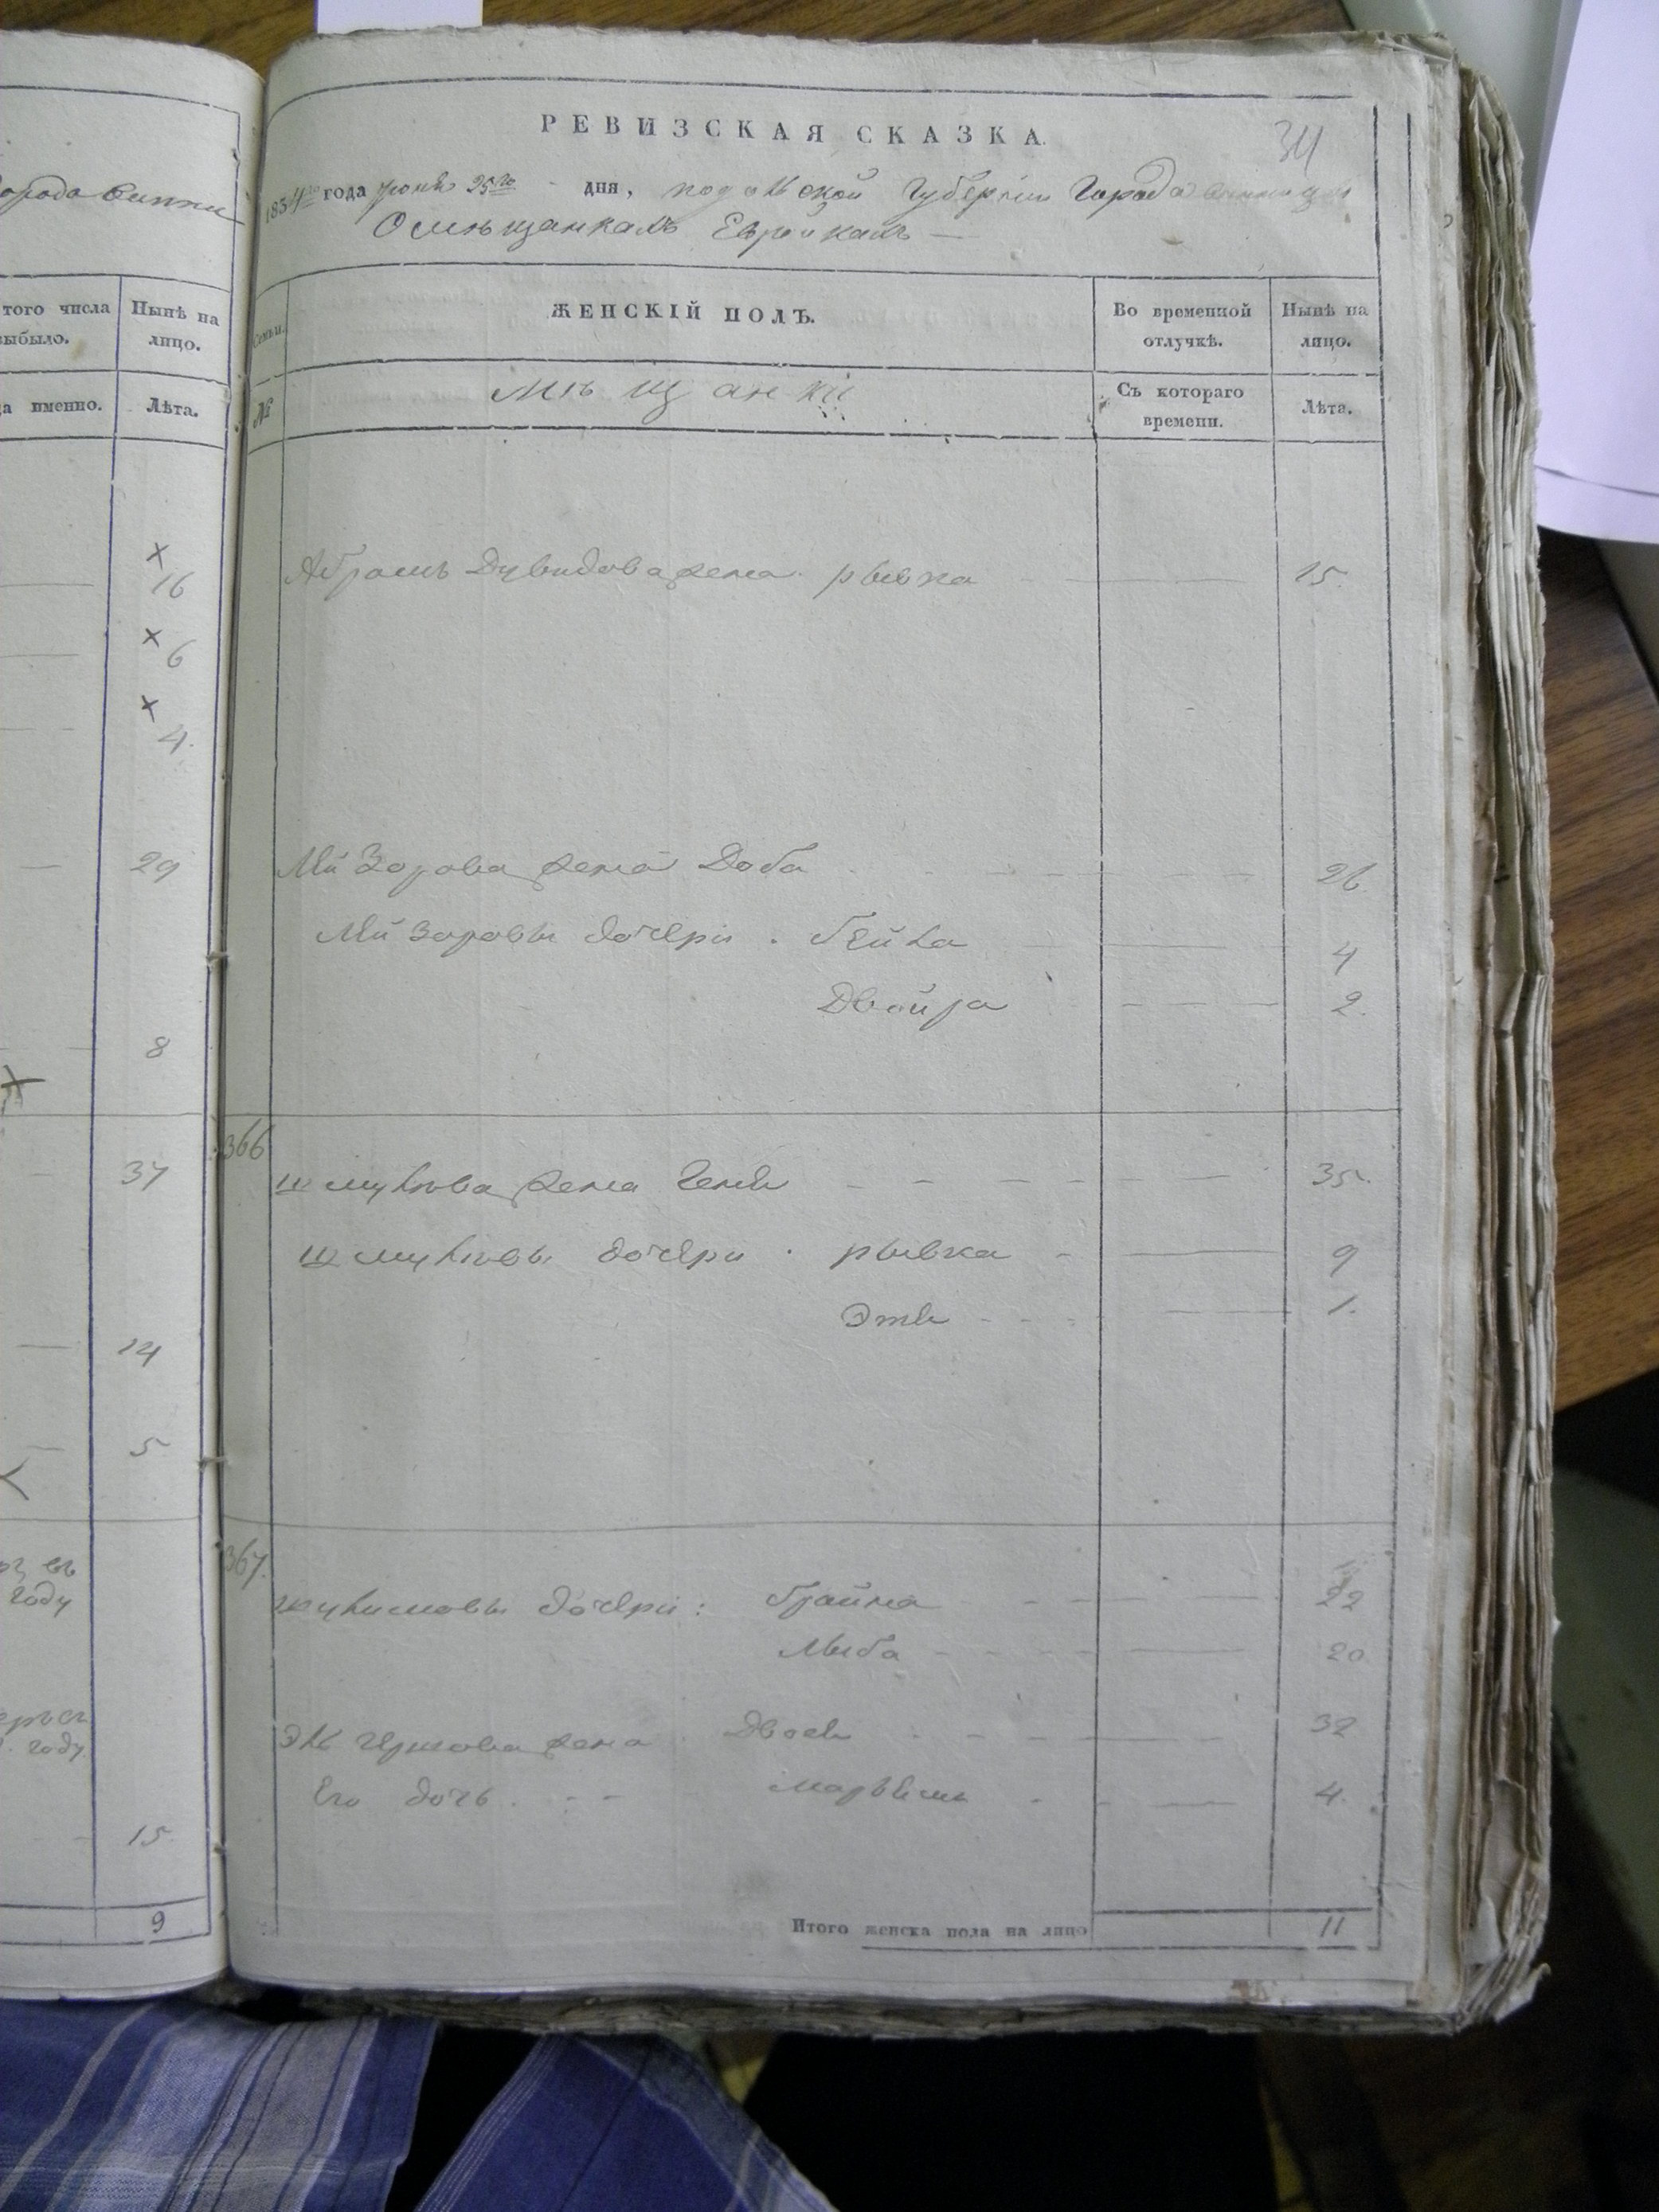 города Винни
того числа
выбыло.
Нынѣ на
лицо.
да именно.
Лѣта.
16
6
4.
29
8
37
14
5
году
году
15
9
РЕВИЗСКАЯ СКАЗКА.
34
1854го года Іюня 25го дня, подольской Губерніи Города Винницы
О мѣщанкахъ Еврейкахъ —
Семьи.
ЖЕНСКІЙ ПОЛЪ.
Во временной
отлучкѣ.
Нынѣ на
лицо.
№
мѣщанки
Съ котораго
времени.
Лѣта.
Абрамъ Дувидова жена. рывка 15.
Мейзорова жена Доба 26.
Мейзоровы дочери. Бейла 4
Двойра 2.
366
шмулѣва жена Геня 35.
шмулѣвы дочери. рывка 9
Этя 1.
367.
дочери: Брайна 22
Лыба 20
жена Двося 32
Его дочь Марьямъ 4.
Итого женска пола на лицо 11